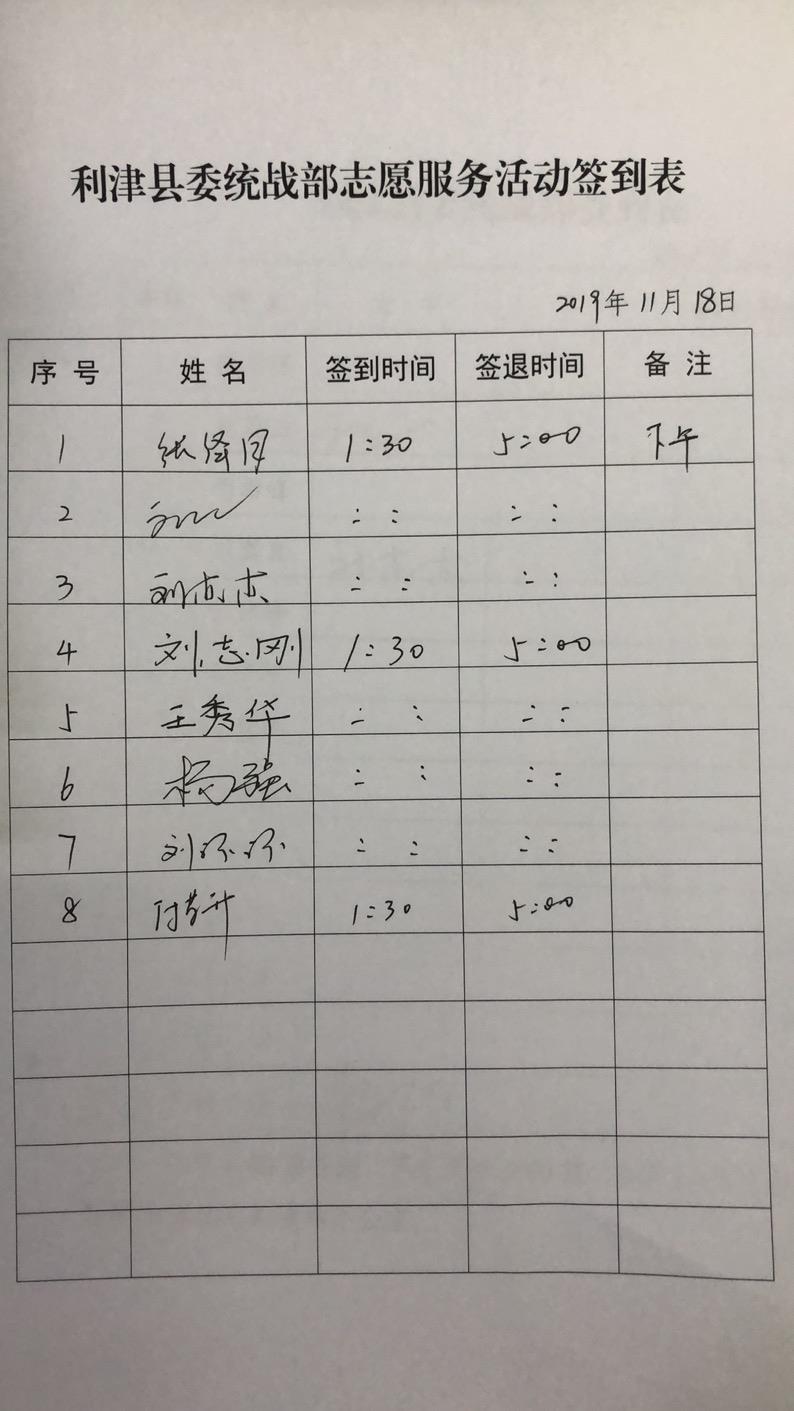 利津县委统战部志愿服务活动签到表
2019年11月18日
序号 姓名 签到时间 签退时间 备注
1 张泽月 1:30 5:00 下午
2 :: ::
3 刘杰杰 :: ::
4 刘志刚 1:30 5:00
5 王秀华 :: ::
6 杨强 :: ::
7 刘环环 :: ::
8 1:30 5:00